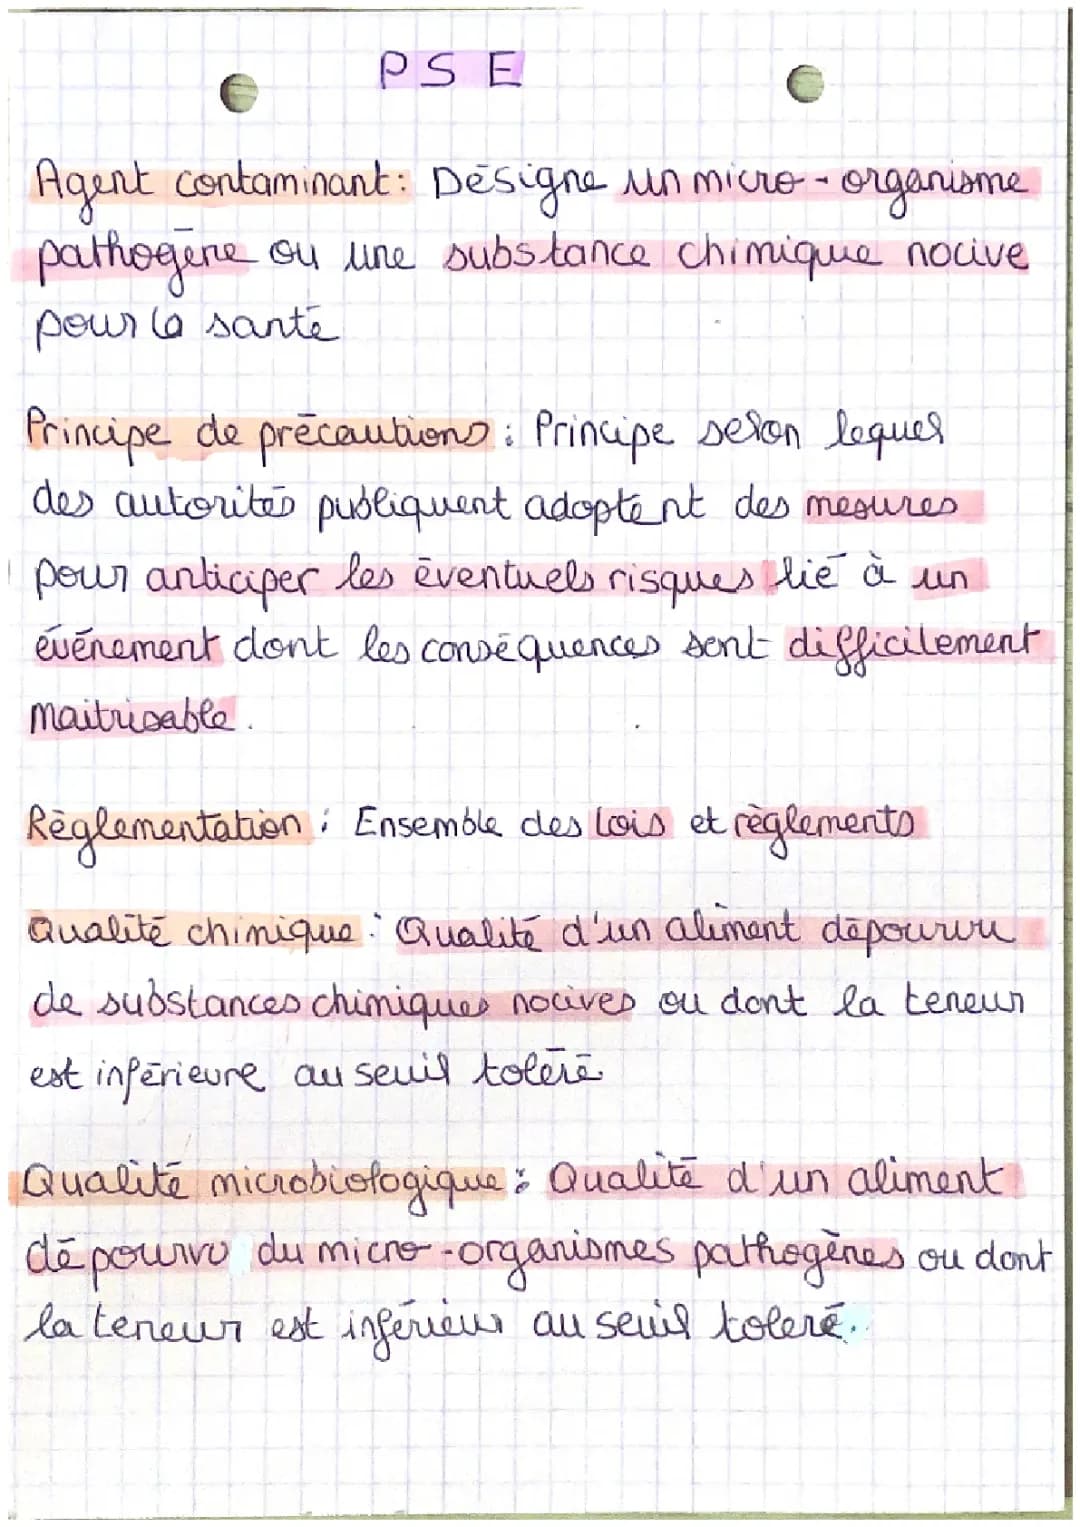 PSE
Agent contaminant : Désigne un micro-organisme
pathogène ou une substance chimique nocive
pour la santé
Principe de précautions : Principe selon lequel
des autorités publiquent adoptent des mesures
pour anticiper les éventuels risques lié à un
événement dont les conséquences sont difficilement
maitrisable.
Règlementation : Ensemble des lois et règlements
Qualité chimique : Qualité d'un aliment dépourvu
de substances chimiques nocives ou dont la teneur
est inférieure au seuil toléré
Qualité microbiologique : Qualité d'un aliment
dépourvu du micro-organismes pathogènes ou dont
la teneur est inférieur au seuil toleré.